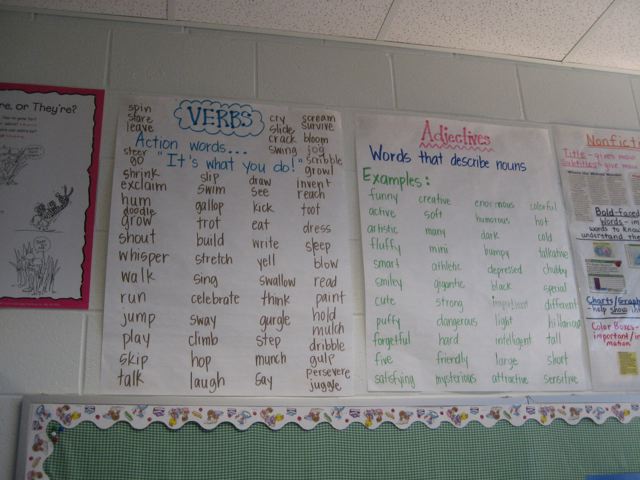 re, or They're?
spin
stare
leave
VERBS
cry
slide
crack
swing
scream
survive
bloom
jog
scribble
growl
Action words...
"It's what you do!"
steer
go
shrink slip draw invent
exclaim swim see reach
hum gallop kick toot
doodle
grow trot eat dress
shout build write sleep
whisper stretch yell blow
walk sing swallow read
run celebrate think paint
jump sway gurgle hold
mulch
play climb step dribble
skip hop munch gulp
persevere
talk laugh say juggle
Adjectives
Words that describe nouns
Examples:
funny creative enormous colorful
active soft humorous hot
artistic many dark cold
fluffy mini bumpy talkative
smart athletic depressed chubby
smiley gigantic black special
cute strong important different
puffy dangerous light hilarious
forgetful hard intelligent tall
five friendly large short
satisfying mysterious attractive sensitive
Nonfictio
Title - gives
Subtitles - give
Bold-faced
Words - im
words to know
understand the
Charts/Graph
- help show
Color Boxes-
important/in
mation